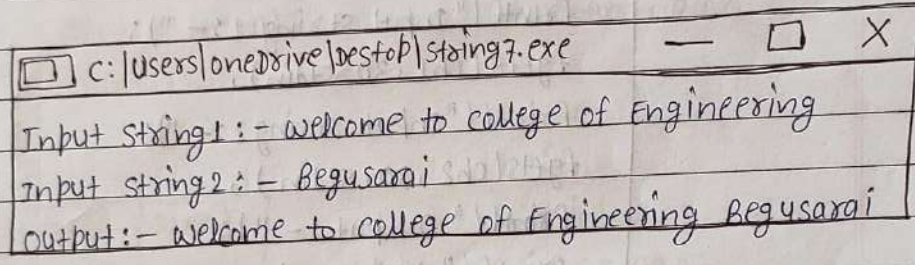 C:\Users\oneDrive\Destop\string7.exe
Input String1:- Welcome to college of Engineering
Input string2:- Begusarai
output:- Welcome to college of Engineering Begusarai